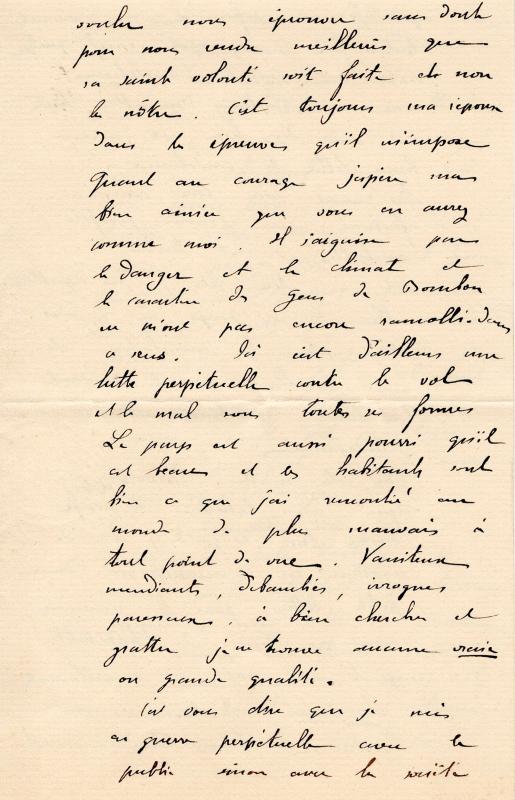 vouloir nous éprouver sans doute
pour nous rendre meilleurs que
sa sainte volonté soit faite et non
la nôtre. C'est toujours ma réponse
dans les épreuves qu'il m'impose
Quant au courage j'espère ma
bien aimée que vous en aurez
comme moi. Il s'aiguise par
le danger et le climat et
le caractère des gens de Bourbon
ne m'ont pas encore ramolli dans
ce sens. Ici c'est d'ailleurs une
lutte perpétuelle contre le vol
et le mal sous toutes ses formes
Le pays est aussi pourri qu'il
est beau et les habitants sont
bien ce que j'ai rencontré au
monde de plus mauvais à
tout point de vue. Vaniteux
mendiants, débauchés, ivrognes
paresseux, à bien chercher et
gratter je ne trouve aucune vraie
ou grande qualité.
C'est vous dire que je suis
en guerre perpétuelle avec le
public sinon avec la société